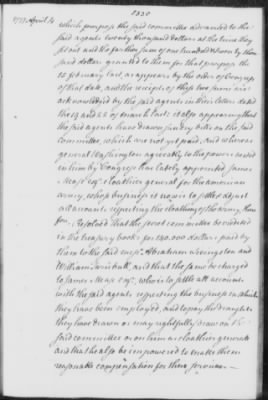 1777. April 14
which purpose the said committee advanced to the
said agents twenty thousand dollars at the time they
and the further sum of one hundred &
said dollars granted to them for that purpose the
25 february last, as appears by the order of Congress
of that date, and the receipt of these two sums are
acknowledged by the said agents in their letters dated
the 13 and 22 of march last: it also appearing that
the said agents have drawn sundry bills on the said
committee, which are not yet paid, and whereas
general Washington agreeably to the powers vested
in him by Congress has lately appointed James
Mease esqr. cloathier general for the american
army, whose business it now is to settle & adjust
all accounts respecting the cloathing of the army, there
fore, Resolved that the secret committee be credited
in the treasury books for dollars paid by
them to the said messrs. Abraham Livingston and
William Turnbull, and that the same be charged
to James Mease esqr. who is to settle all accounts
with the said agents respecting the business in which
they have been employed, and to pay the draughts
they have drawn or may rightfully draw on the
said committee or on him as cloathier general
and that he also be impowered to make them
reasonable compensation for their services—